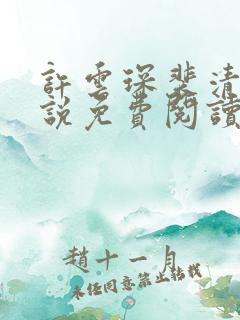 許雲琛裴清
說免費閱讀
趙十一月
未經同意禁止轉載